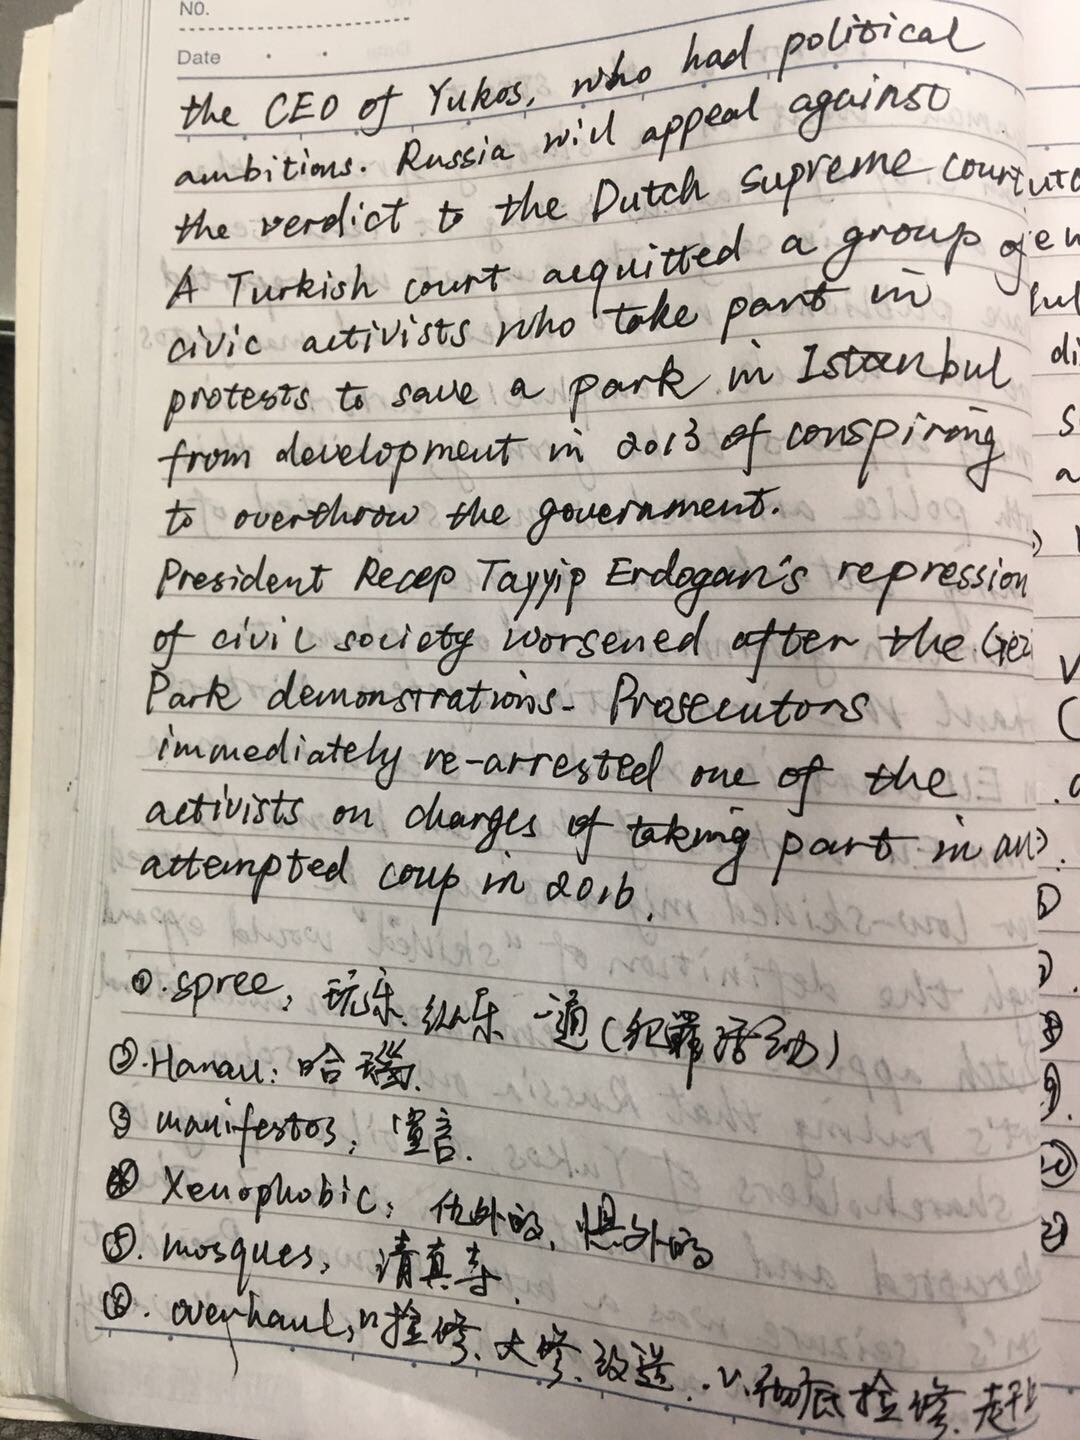 NO.
Date
the CEO of Yukos, who had political
ambitions. Russia will appeal against
the verdict to the Dutch supreme court
A Turkish court acquitted a group of
civic activists who take part in
protests to save a park in Istanbul
from development in 2013 of conspiring
to overthrow the government.
President Recep Tayyip Erdogan's repression
of civil society worsened after the Gezi
Park demonstrations. Prosecutors
immediately re-arrested one of the
activists on charges of taking part in an
attempted coup in 2016.
①. spree, 玩乐、纵乐 一通(犯罪活动)
②. Hanau: 哈瑙.
③ manifestos, 宣言.
④ Xenophobic, 仇外的, 惧外的
⑤. mosques, 清真寺.
⑥. overhaul, n检修、大修、改造. v.彻底检修、赶